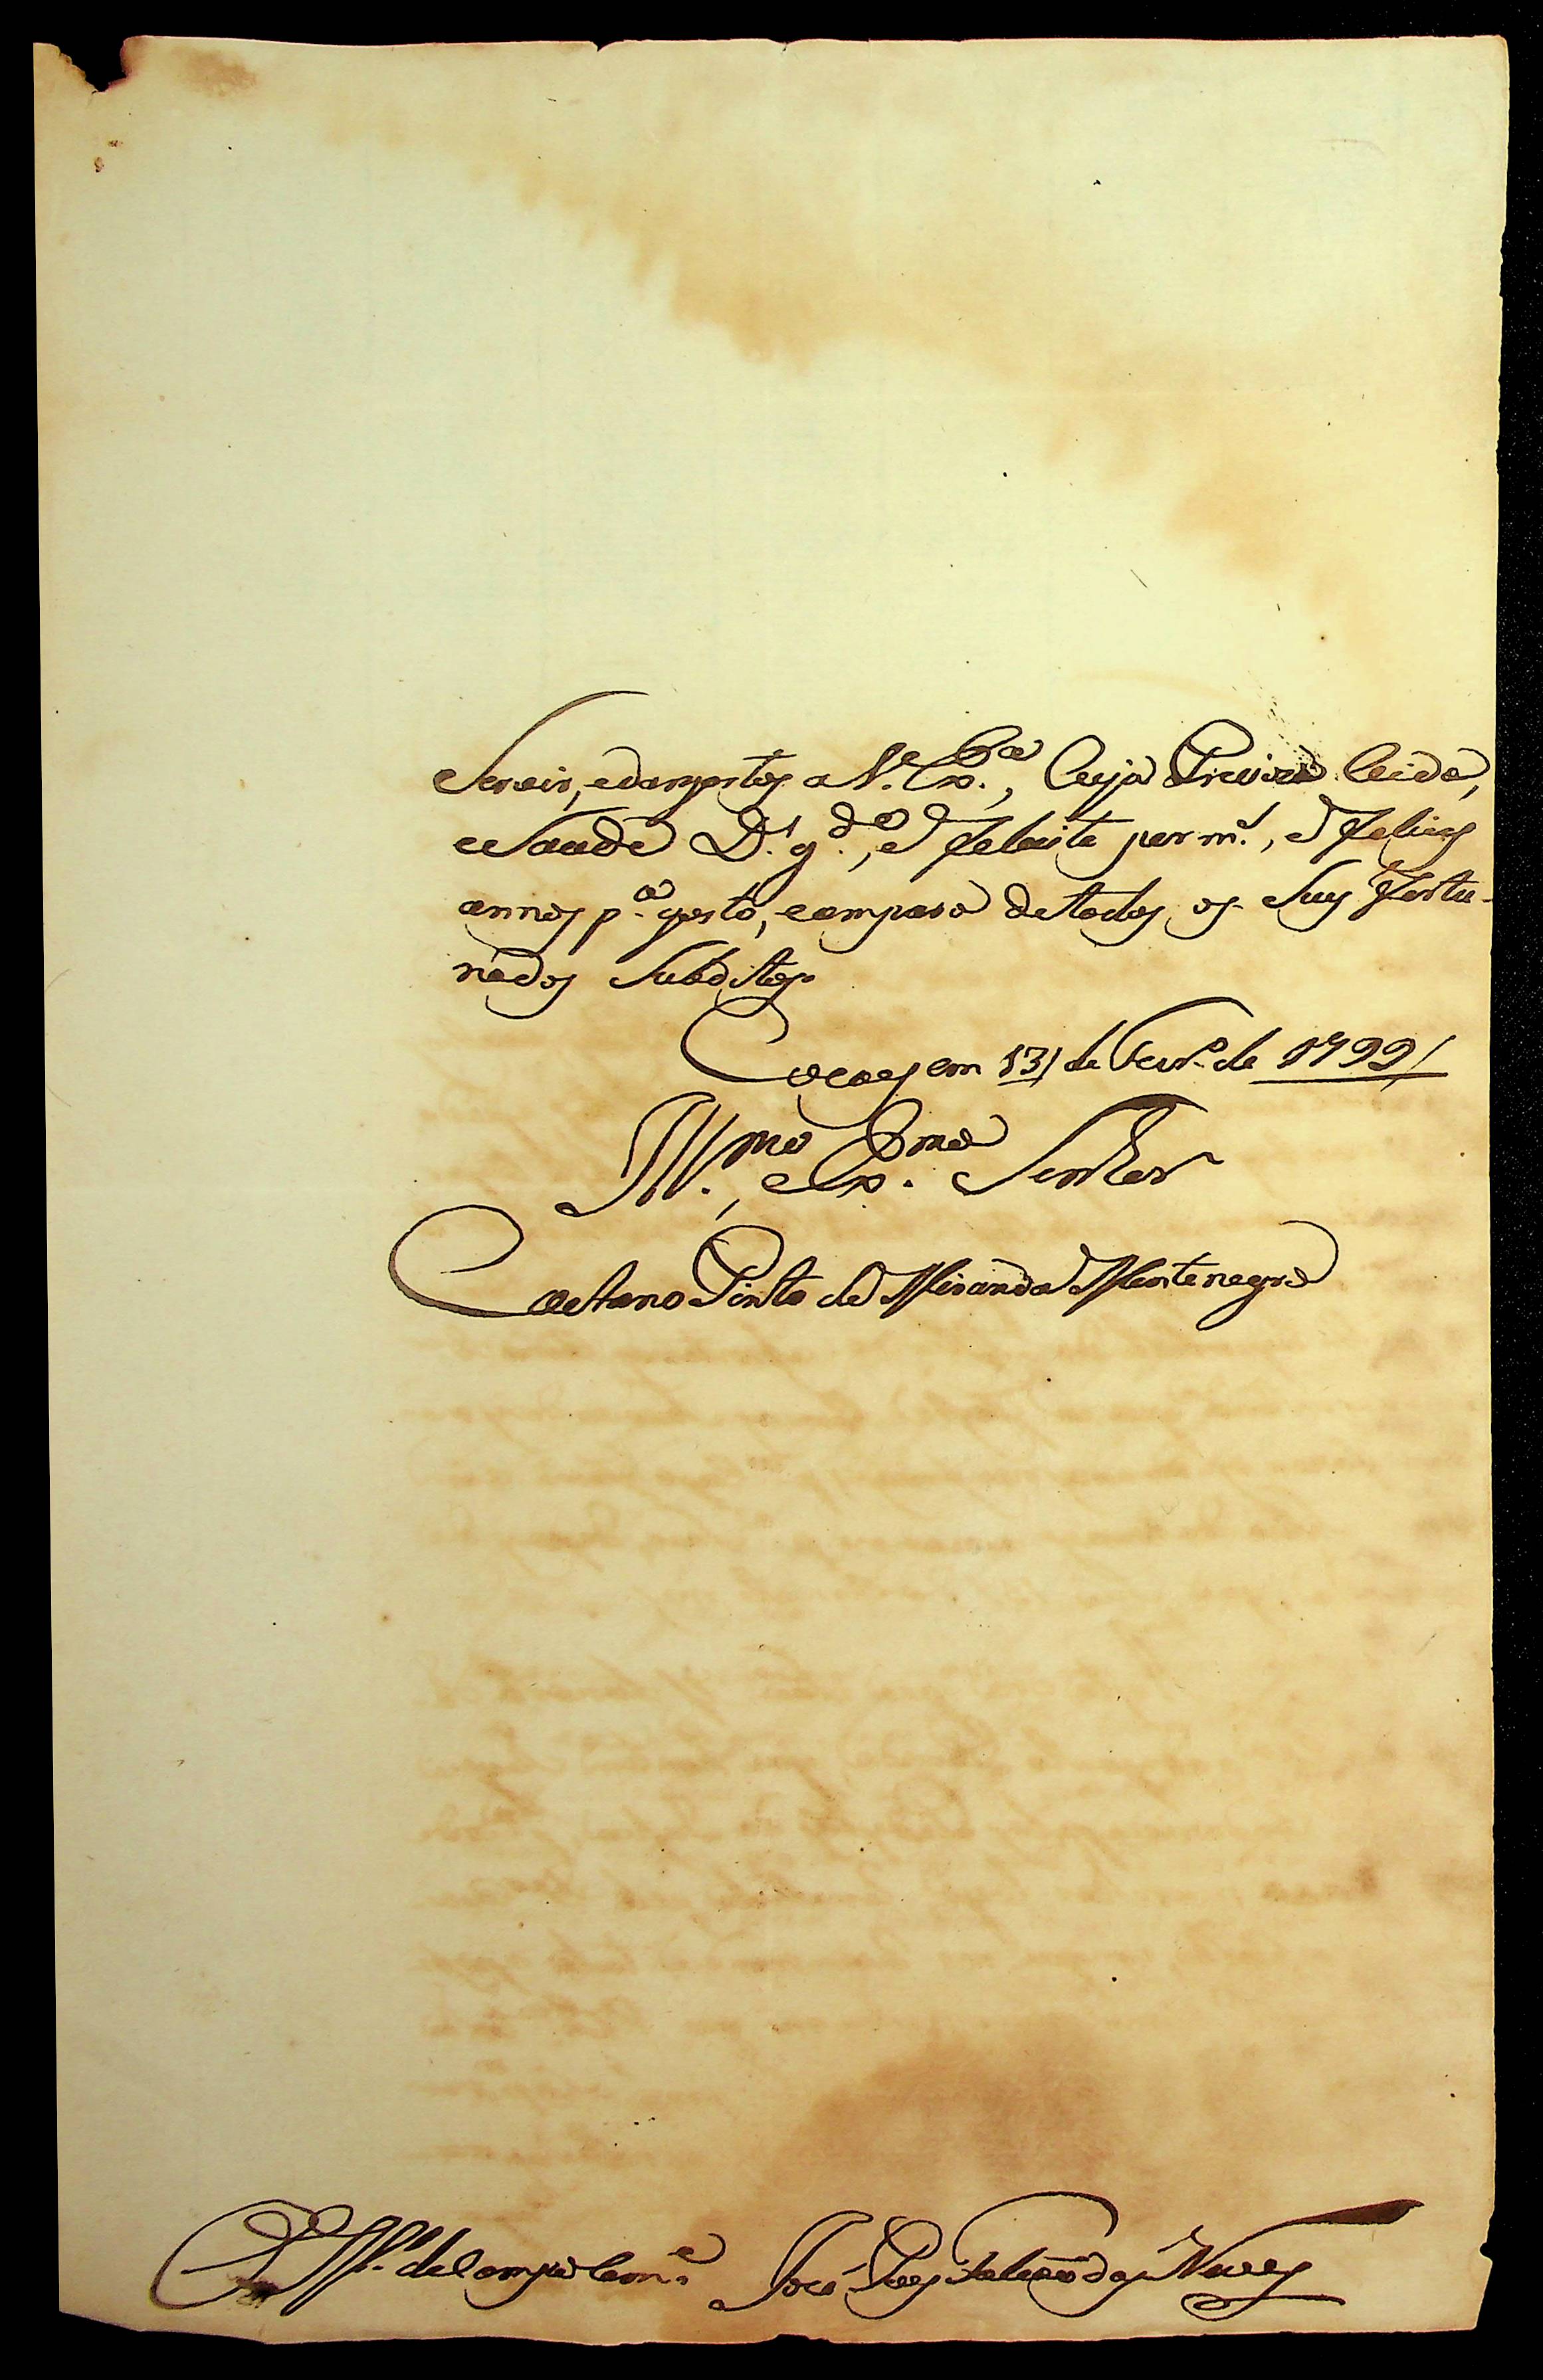 Servir, e dar gostos a V. Ex.ª, Cuja Precioza Vida,
e Saude D.s g.de, e felecite por m.s, e Felices
annos p.ª gosto, e amparo de todos os Seus Fortu-
nados Subditos.
Cocaes em 13 de Fevr.o de 1799
Ill.mo, e Ex.mo Senhor
Caetano Pinto de Miranda Montenegro
O M.e de Campo Com.e José Paes Falcão das Neves